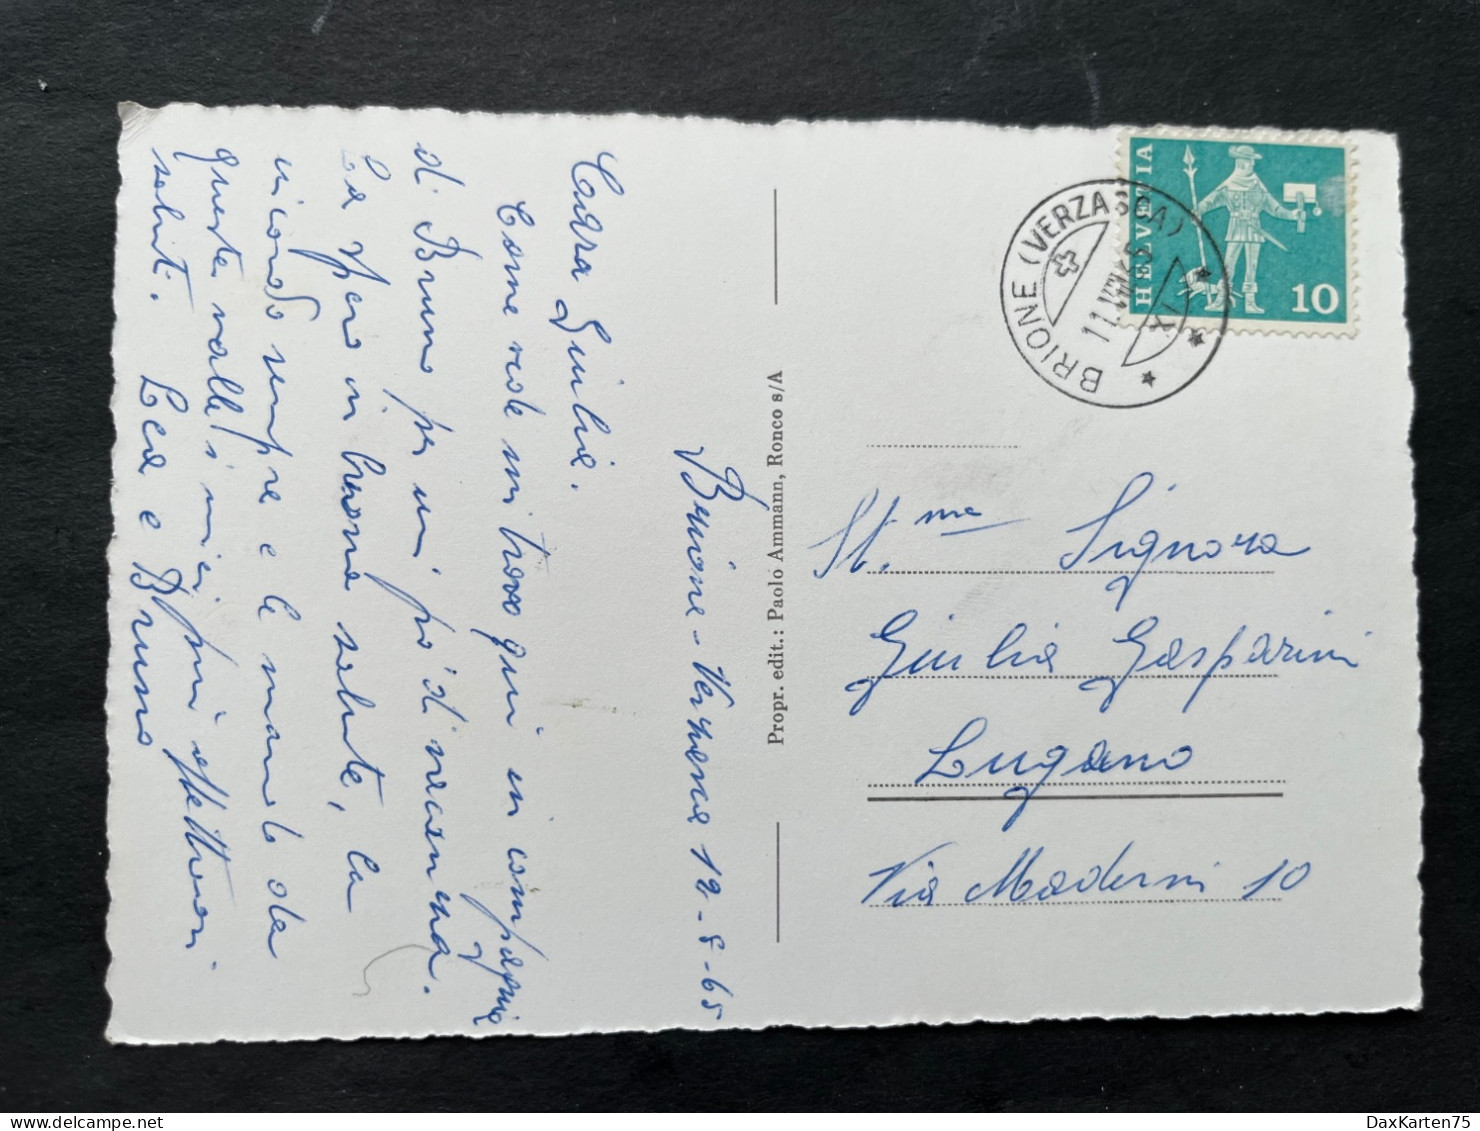 Brione-Verzasca 12-8-65
Cara Giulia.
Come vede mi trovo qui in compagnia
di Bruno per un pò di vacanza.
La spero in buona salute, la
ricordo sempre e le mando da
questa valle i miei più affettuosi
saluti. Lea e Bruno
Propr. edit.: Paolo Ammann, Ronco s/A
HELVETIA
10
BRIONE (VERZASCA)
11.VIII.65
St.ma Signora
Giulia Gasparini
Lugano
Via Maderni 10
DaxKarten75